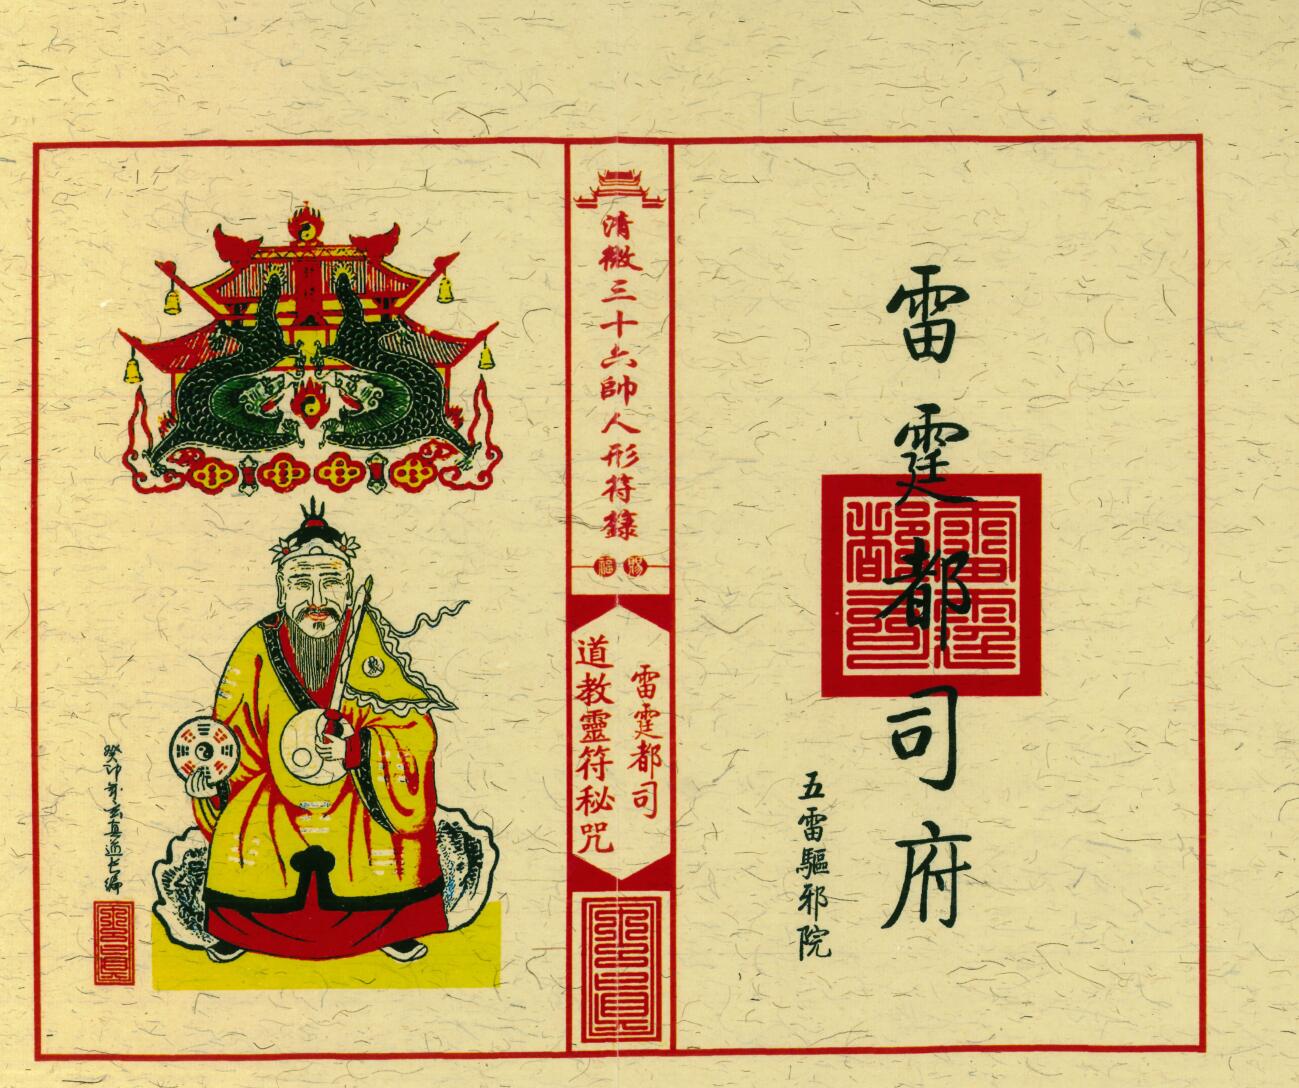 雷霆都司府
雷霆都司
五雷驅邪院
清微三十六帥人形符錄
賜福
雷霆都司
道教靈符秘咒
癸卯年玄真道長編